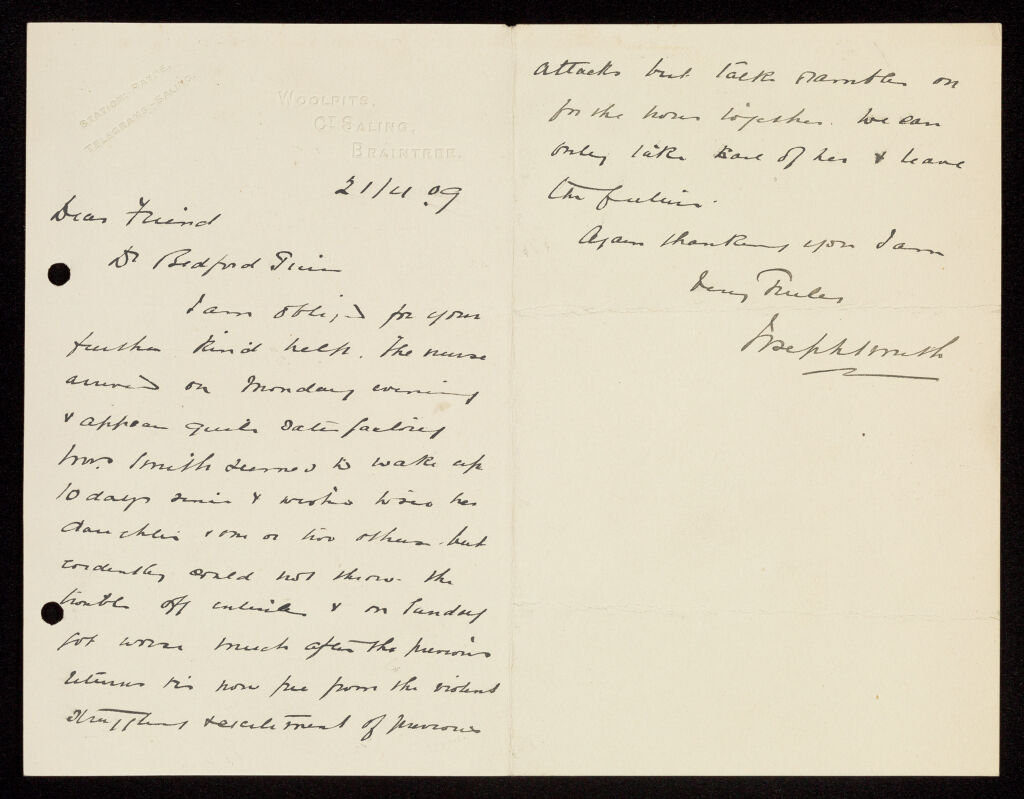 STATION, RAYNE.
TELEGRAMS, SALING.
WOOLPITS,
GT. SALING,
BRAINTREE.
21/4 09
Dear Friend
Dr Bedford Pierce
I am obliged for your
further kind help. The nurse
arrived on Monday evening
& appears quite satisfactory
Mrs Smith seemed to wake up
10 days since & wished to see her
daughter & one or two others but
evidently could not throw the
trouble off entirely & on Sunday
got worse much after the previous
returns & is now free from the violent
struggling & excitement of previous
attacks but talks & rambles on
for the hour together. We can
only take care of her & leave
the future.
Again thanking you I am
Very Truly
Joseph Smith